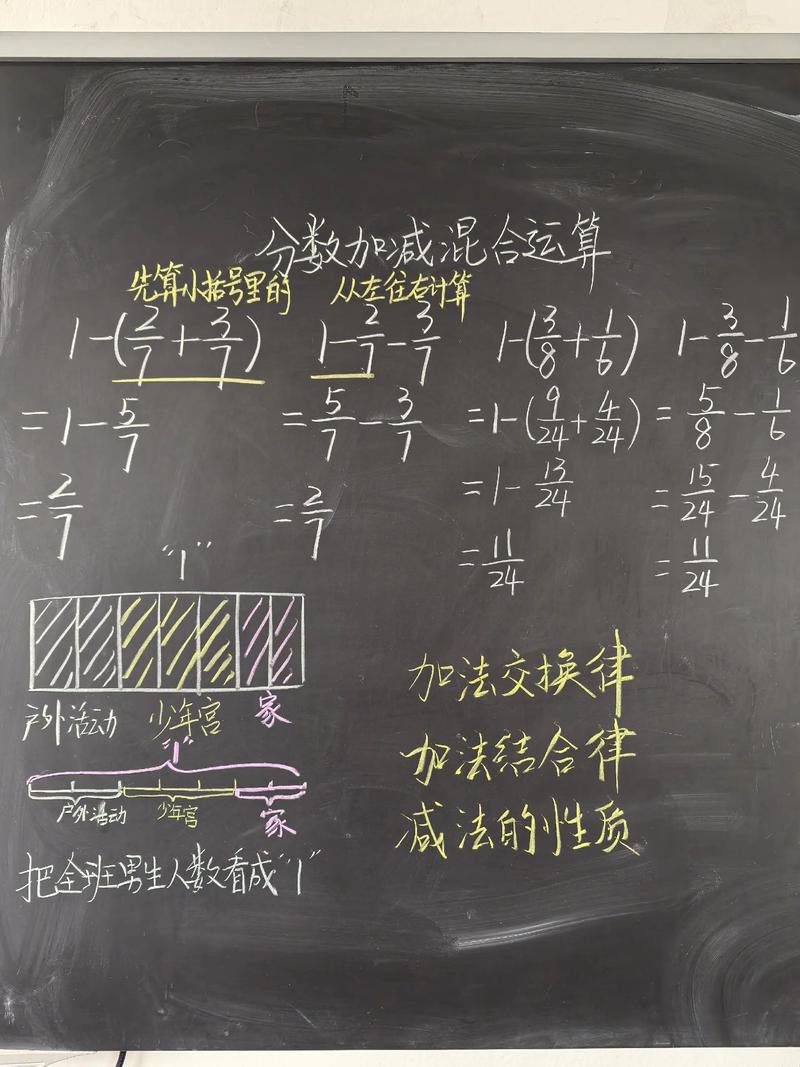 分数加减混合运算
先算小括号里的 从左往右计算
1-(2/7+3/7) 1-2/7-3/7 1-(3/8+1/6) 1-3/8-1/6
=1-5/7 =5/7-3/7 =1-(9/24+4/24) =5/8-1/6
=2/7 =2/7 =1-13/24 =15/24-4/24
=11/24 =11/24
“1”
户外活动 少年宫 家
“1”
户外活动 少年宫 家
把全班男生人数看成“1”
加法交换律
加法结合律
减法的性质